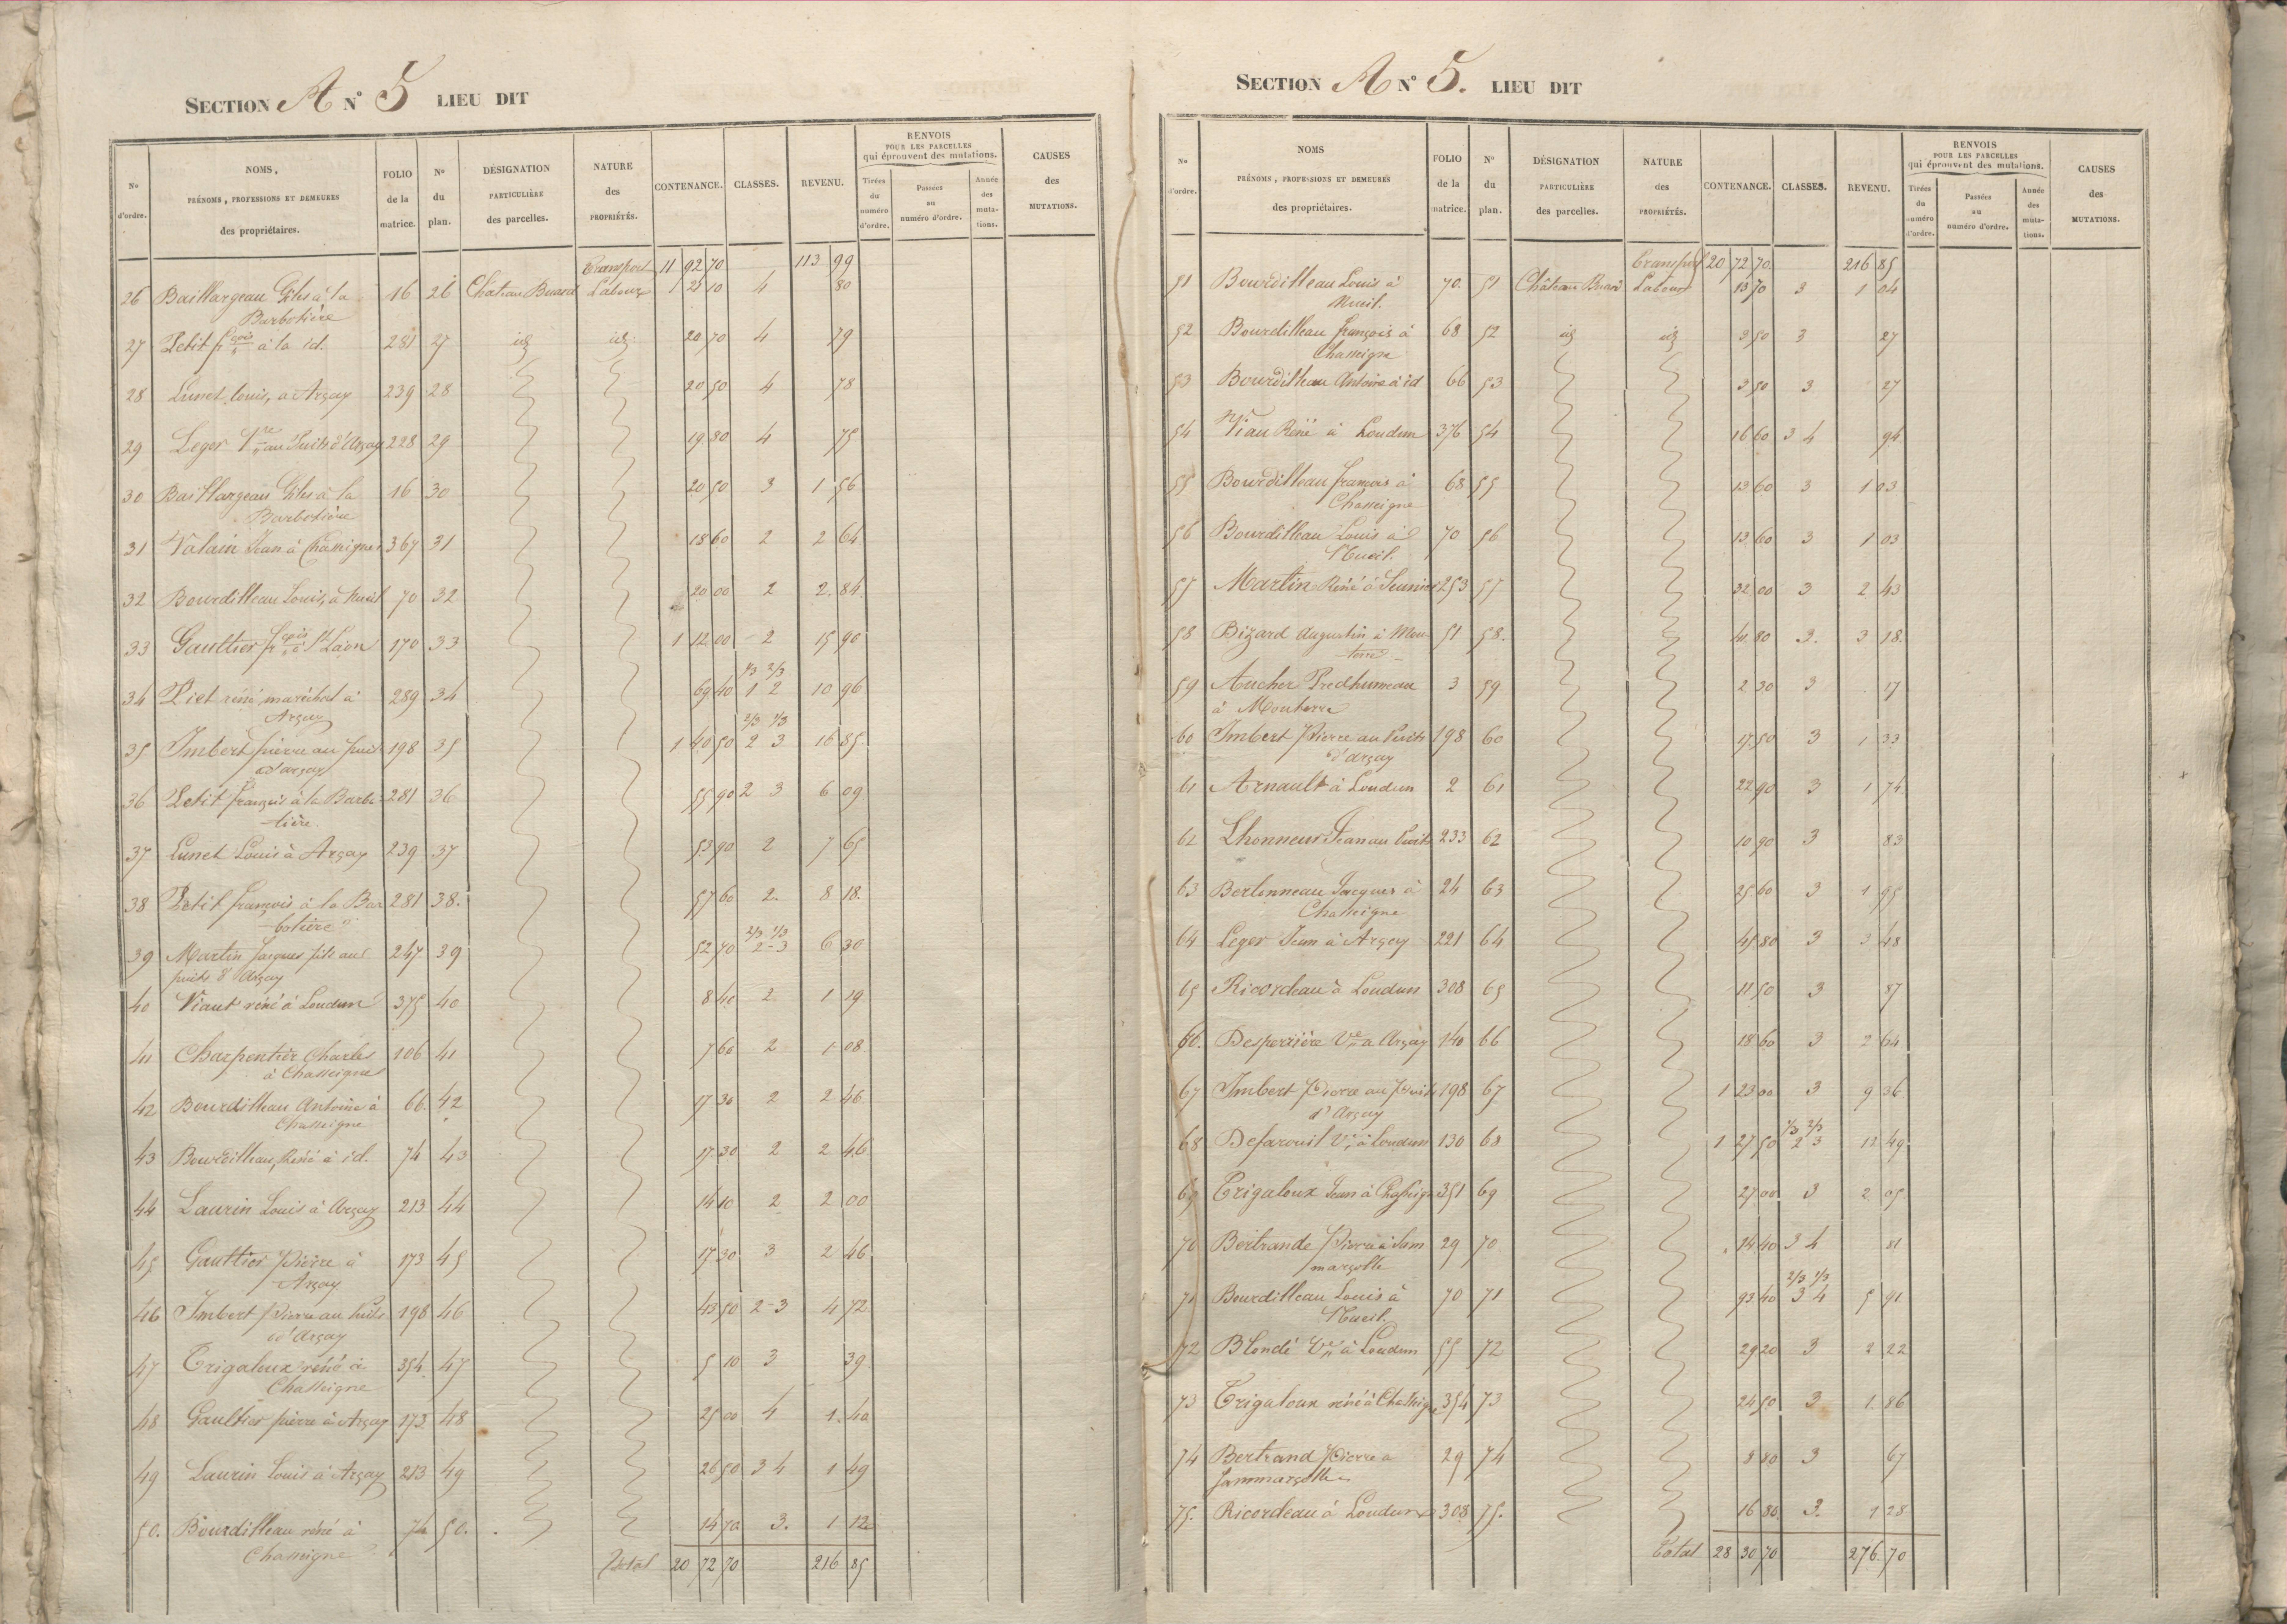 SECTION A N° 5 LIEU DIT
N° d'ordre. NOMS, PRÉNOMS, PROFESSIONS ET DEMEURES des propriétaires. FOLIO de la matrice. N° du plan. DÉSIGNATION PARTICULIÈRE des parcelles. NATURE des PROPRIÉTÉS. CONTENANCE. CLASSES. REVENU. RENVOIS POUR LES PARCELLES qui éprouvent des mutations. Tirées du numéro d'ordre. Passées au numéro d'ordre. Année des mutations. CAUSES des MUTATIONS.
Transport 11 92 70 113 99
26 Baillargeau Giles à la 16 26 Château Buard Labour 10 4 80
Barbotière
27 Petit fçois à la id. 281 27 id id 20 70 4 79
28 Lunet Louis, a Arçay 239 28 20 50 4 78
29 Leger Vve au Puits d'Arçay 228 29 19 80 4 75
30 Baillargeau Giles à la 16 30 20 50 3 1 56
Barbotière
31 Valain Jean à Chasseignes 367 31 18 60 2 2 64
32 Bourdilleau Louis, à Nueil 70 32 20 00 2 2. 84
33 Gaultier fçois à St Laon 170 33 1 12 00 2 15 90
1/3 2/3
34 Piet réné maréchal à 289 34 69 40 1 2 10 96
Arçay
2/3 1/3
35 Imbert pierre au puits 198 35 1 40 50 2 3 16 85
d'arçay
36 Petit françois à la Barbo- 281 36 55 90 2 3 6 09
-tière.
37 Lunet Louis à Arçay 239 37 53 90 2 7 65
38 Petit françois à la Bar 281 38. 57 60 2. 8 18.
-botière
2/3 1/3
39 Martin Jacques fils au 247 39 52 70 2-3 6 30
puits d'Arçay
40 Viaut réné à Loudun 375 40 8 40 2 1 19
41 Charpentier Charles 106 41 7 60 2 1 08
à Chasseignes
42 Bourdilleau Antoine à 66 42 17 30 2 2 46
Chasseigne
43 Bourdilleau, Réné à id. 74 43 17 30 2 2 46
44 Laurin Louis à Arçay 213 44 14 10 2 2 00
45 Gaultier Pierre à 173 45 17 30 3 2 46
Arçay
46 Imbert Pierre au Puits 198 46 43 50 2-3 4 72
d'Arçay
47 Trigaloux réné à 354 47 5 10 3 39
Chasseigne
48 Gaultier pierre à Arçay 173 48 25 00 4 1. 40
49 Laurin Louis à Arçay 213 49 26 50 3 4 1 49
50. Bourdilleau réné à 74 50. 14 70 3. 1 12
Chasseigne
Total 20 72 70 216 85
SECTION A N° 5. LIEU DIT
N° d'ordre. NOMS PRÉNOMS, PROFESSIONS ET DEMEURES des propriétaires. FOLIO de la matrice. N° du plan. DÉSIGNATION PARTICULIÈRE des parcelles. NATURE des PROPRIÉTÉS. CONTENANCE. CLASSES. REVENU. RENVOIS POUR LES PARCELLES qui éprouvent des mutations. Tirées du numéro d'ordre. Passées au numéro d'ordre. Année des mutations. CAUSES des MUTATIONS.
Transport 20 72 70 216 85
51 Bourdilleau Louis à 70. 51 Château Buard Labour 13 70 3 1 04
Nueil.
52 Bourdilleau françois à 68 52 id id 3 50 3 27
Chasseigne
53 Bourdilleau Antoine à id 66 53 3 50 3 27
54 Viau Réné à Loudun 376 54 16 60 3 4 94
55 Bourdilleau françois à 68 55 13 60 3 1 03
Chasseigne
56 Bourdilleau Louis à 70 56 13 60 3 1 03
Nueil.
57 Martin Réné à 253 57 32 00 3 2 43
58 Bizard Augustin à Mou- 51 58. 41 80 3. 3 18.
-terre
59 Aucher Predhumeau 3 59 2 30 3 17
à Mouterre
60 Imbert Pierre au Puits 198 60 17 50 3 1 33
d'Arçay
61 Arnault à Loudun 2 61 22 90 3 1 74
62 Lhonneur Jean au Puits 233 62 10 90 3 83
63 Berlonneau Jacques à 24 63 25 60 3 1 95
Chasseigne
64 Leger Jean à Arçay 221 64 45 80 3 3 48
65 Ricordeau à Loudun 308 65 11 50 3 87
66. Desperrière Ve a Arçay 140 66 18 60 3 2 64
67 Imbert Pierre au Puits 198 67 1 23 00 3 9 36
d'Arçay
1/3 2/3
68 Defarouil Ve à Loudun 130 68 1 27 50 2 3 12 49
69 Trigaloux Jean à Chasseigne 351 69 27 00 3 2 05
70 Bertrande Pierre à Sam 29 70 14 40 3 4 81
marçolle
2/3 1/3
71 Bourdilleau Louis à 70 71 93 40 3 4 5 91
Nueil.
72 Blondé Ve à Loudun 55 72 29 20 3 2 22
73 Trigaloux réné à Chasseigne 354 73 24 50 3 1. 86
74 Bertrand Pierre a 29 74 8 80 3 67
Sammarçolle
75. Ricordeau à Loudun 308 75. 16 80 3. 1 28
Total 28 30 70 276. 70